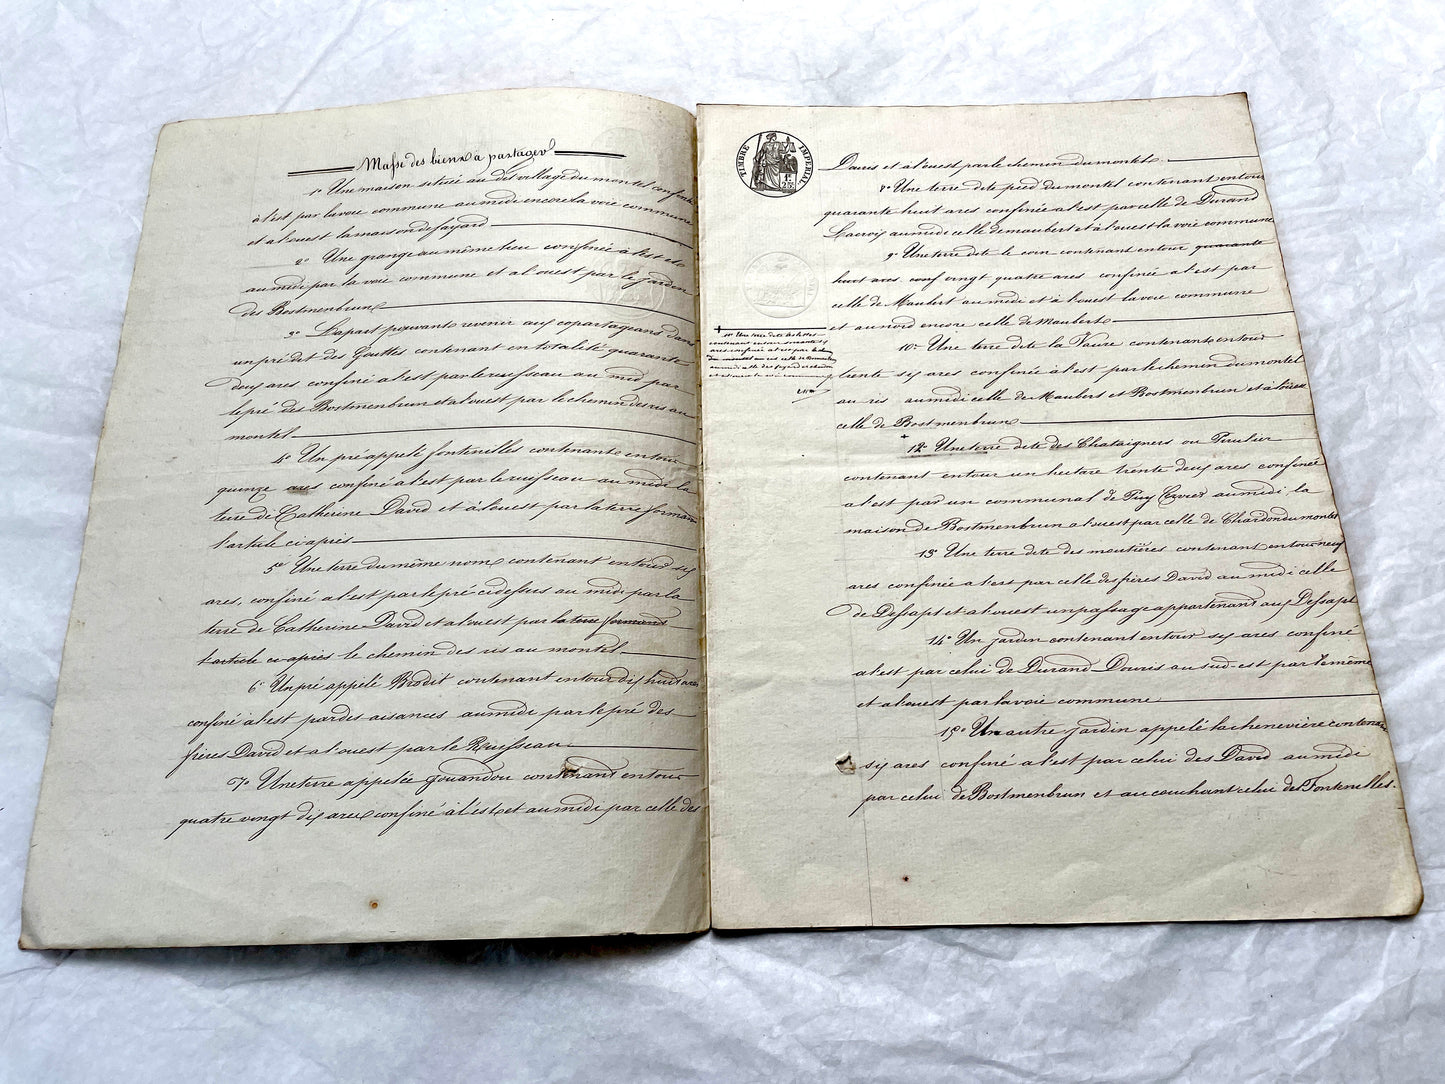 Masse des biens à partager
1º Une maison située au dit village du montel confinée
à l'est par la voie commune au midi encore la voie commune
et à l'ouest la maison de fayard
2º Une grange au même lieu confinée à l'est et
au midi par la voie commune et à l'ouest par le jardin
des Bostmenbrun
3º La part pouvant revenir aux copartageans dans
un pré dit des Gouttes contenant en totalité quarante
deux ares confiné à l'est par le ruisseau au midi par
le pré des Bostmenbrun et à l'ouest par le chemin des ris au
montel
4º Un pré appelé fontenilles contenant entour
quinze ares confiné à l'est par le ruisseau au midi la
terre de Catherine David et à l'ouest par la terre formant
l'article ci-après
5º Une terre du même nom contenant entour six
ares, confiné à l'est par le pré ci dessus au midi par la
terre de Catherine David et à l'ouest par la terre formant
l'article ci-après le chemin des ris au montel
6º Un pré appelé Brodit contenant entour dix huit ares
confiné à l'est par des aisances au midi par le pré des
frères David et à l'ouest par le Ruisseau
7º Une terre appelée Gouandou contenant entour
quatre vingt dix ares confiné à l'est et au midi par celle des
TIMBRE IMPERIAL
1F. 25c.
Douris et à l'ouest par le chemin du montel
8º Une terre dite pied du montel contenant entour
quarante huit ares confinée à l'est par celle de Durand
Lacroix au midi celle de maubert et à l'ouest la voie commune
9º Une terre dite le coin contenant entour quarante
huit ares vingt quatre ares confinée à l'est par
celle de Maubert au midi et à l'ouest la voie commune
et au nord encore celle de Maubert
10º Une terre dite la Vaure contenant entour
trente six ares confinée à l'est par le chemin du montel
au ris au midi celle de Maubert et Bostmenbrun et à l'ouest
celle de Bostmenbrun
11º Une terre dite
contenant entour
ares confinée à l'est par le chemin
du montel au ris celle de
au midi celle des fayard et
et la voie commune
12º Une terre dite des Chataigners ou Perulier
contenant entour un hectare trente deux ares confinée
à l'est par un communal de Puy au midi la
maison de Bostmenbrun à l'ouest par celle de Chardon du montel
13º Une terre dite des moutières contenant entour neuf
ares confinée à l'est par celle des frères David au midi celle
de Dessapt et à l'ouest un passage appartenant aux Dessapt
14º Un jardin contenant entour six ares confiné
à l'est par celui de Durand Douris au sud-est par le même
et à l'ouest par la voie commune
15º Un autre jardin appelé la chenevière contenant
six ares confiné à l'est par celui des David au midi
par celui de Bostmenbrun et au couchant celui de Fontenelles.